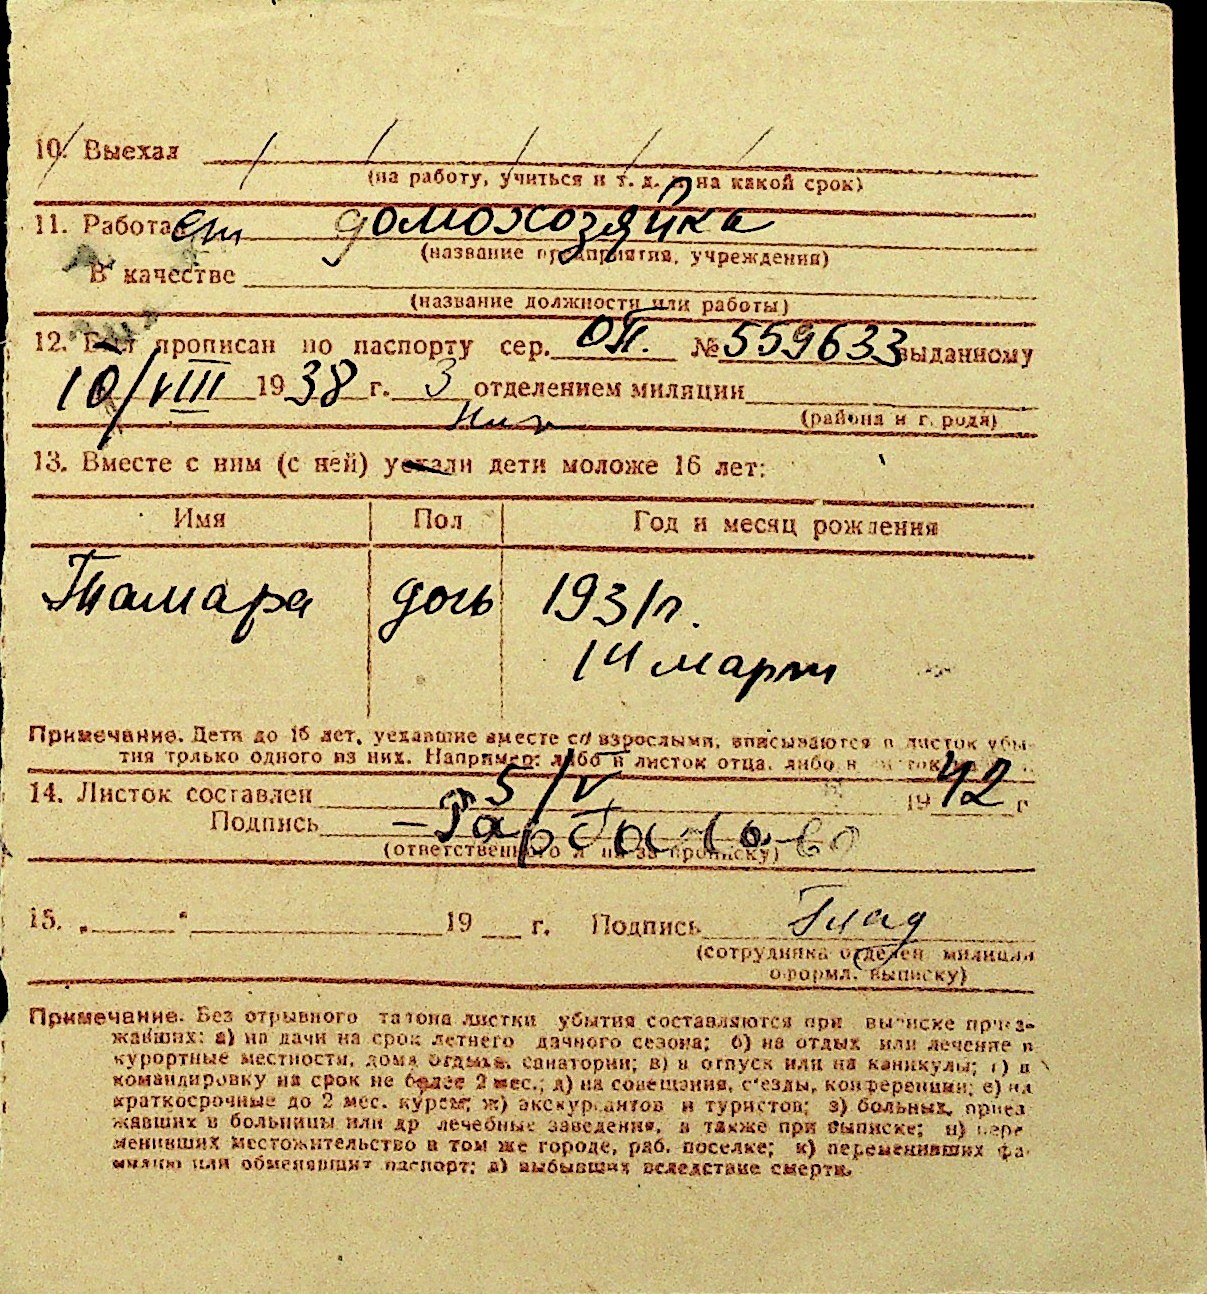 10. Выехал
(на работу, учиться и т. д. и на какой срок)
11. Работает домохозяйка
(название предприятия, учреждения)
В качестве
(название должности или работы)
12. Был прописан по паспорту сер. ОП. № 559633 выданному
10/VIII 1938 г. 3 отделением милиции
(района и города)
13. Вместе с ним (с ней) уехали дети моложе 16 лет:
Имя Пол Год и месяц рождения
Тамара дочь 1931 г.
14 марта
Примечание. Дети до 16 лет, уехавшие вместе со взрослыми, вписываются в листок убы-
тия только одного из них. Например: либо в листок отца, либо в листок
14. Листок составлен 5/V 1942 г
Подпись
(ответственного л за прописку)
15. „ “ 19 г. Подпись
(сотрудника отделен милиции
оформл. выписку)
Примечание. Без отрывного талона листки убытия составляются при выписке приез-
жавших: а) на дачи на срок летнего дачного сезона; б) на отдых или лечение в
курортные местности, дома отдыха, санатории; в) в отпуск или на каникулы; г) в
командировку на срок не более 2 мес.; д) на совещания, с'езды, конференции; е) на
краткосрочные до 2 мес. курсы; ж) экскурсантов и туристов; з) больных, приез
жавших в больницы или др лечебные заведения, а также при выписке; и) пере
менивших местожительство в том же городе, раб. поселке; к) переменивших фа-
милию или обменявших паспорт; л) выбывших вследствие смерти.